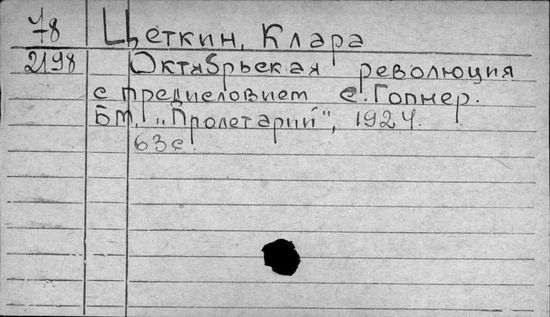 78 Цеткин, Клара
2198 Октябрьская революция
с предисловием С. Гопнер.
БМ, "Пролетарий", 1924.
63с.